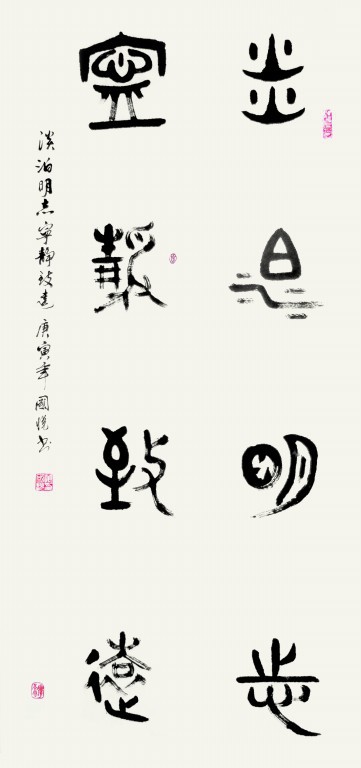 淡泊明志
寧靜致遠
淡泊明志寧靜致遠 庚寅年國悅书